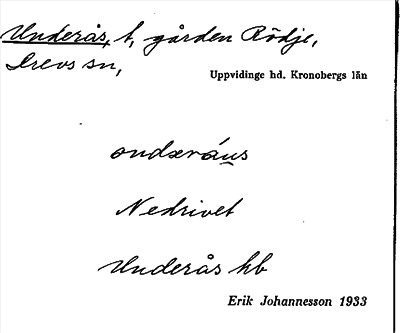 Underås, t, gården Rödje,
Drevs sn,
Uppvidinge hd. Kronobergs län
Nedrivet
Underås kb
Erik Johannesson 1933